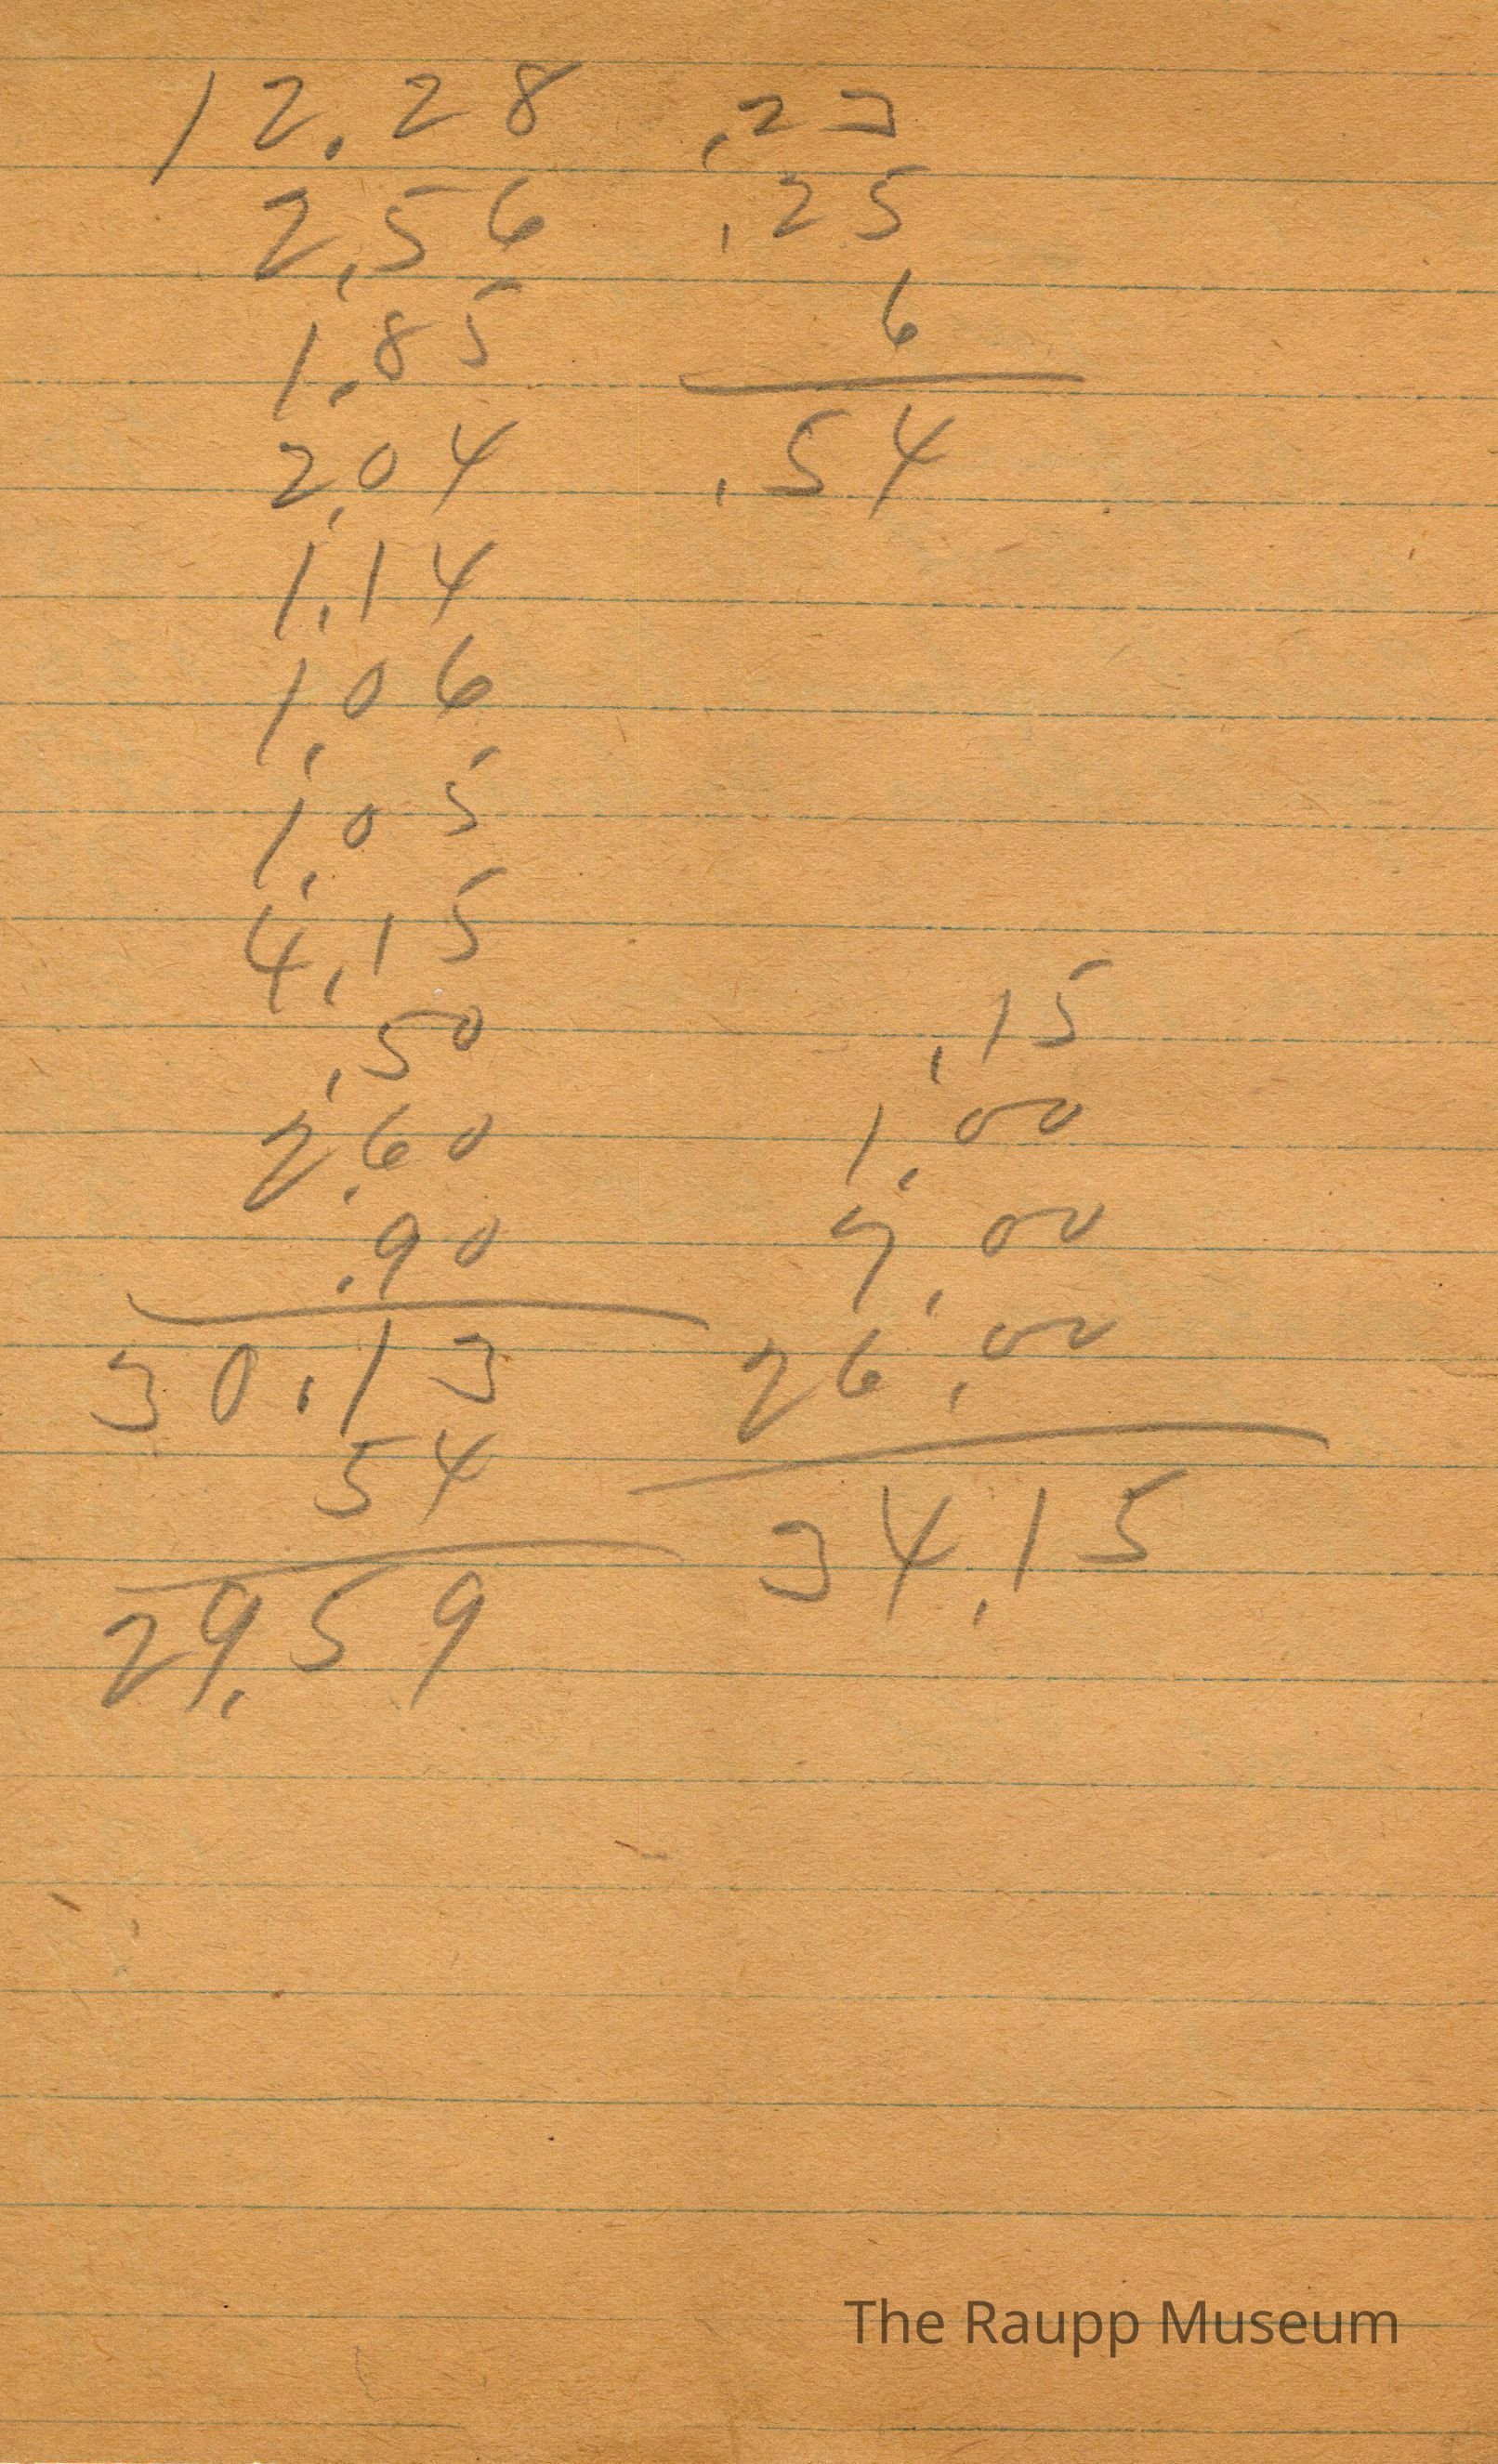 12.28
2.56
1.85
2.04
1.14
1.06
1.05
4.15
.50
2.60
.90
30.13
54
29.59
.23
.25
6
.54
.15
1.00
7.00
26.00
34.15
The Raupp Museum